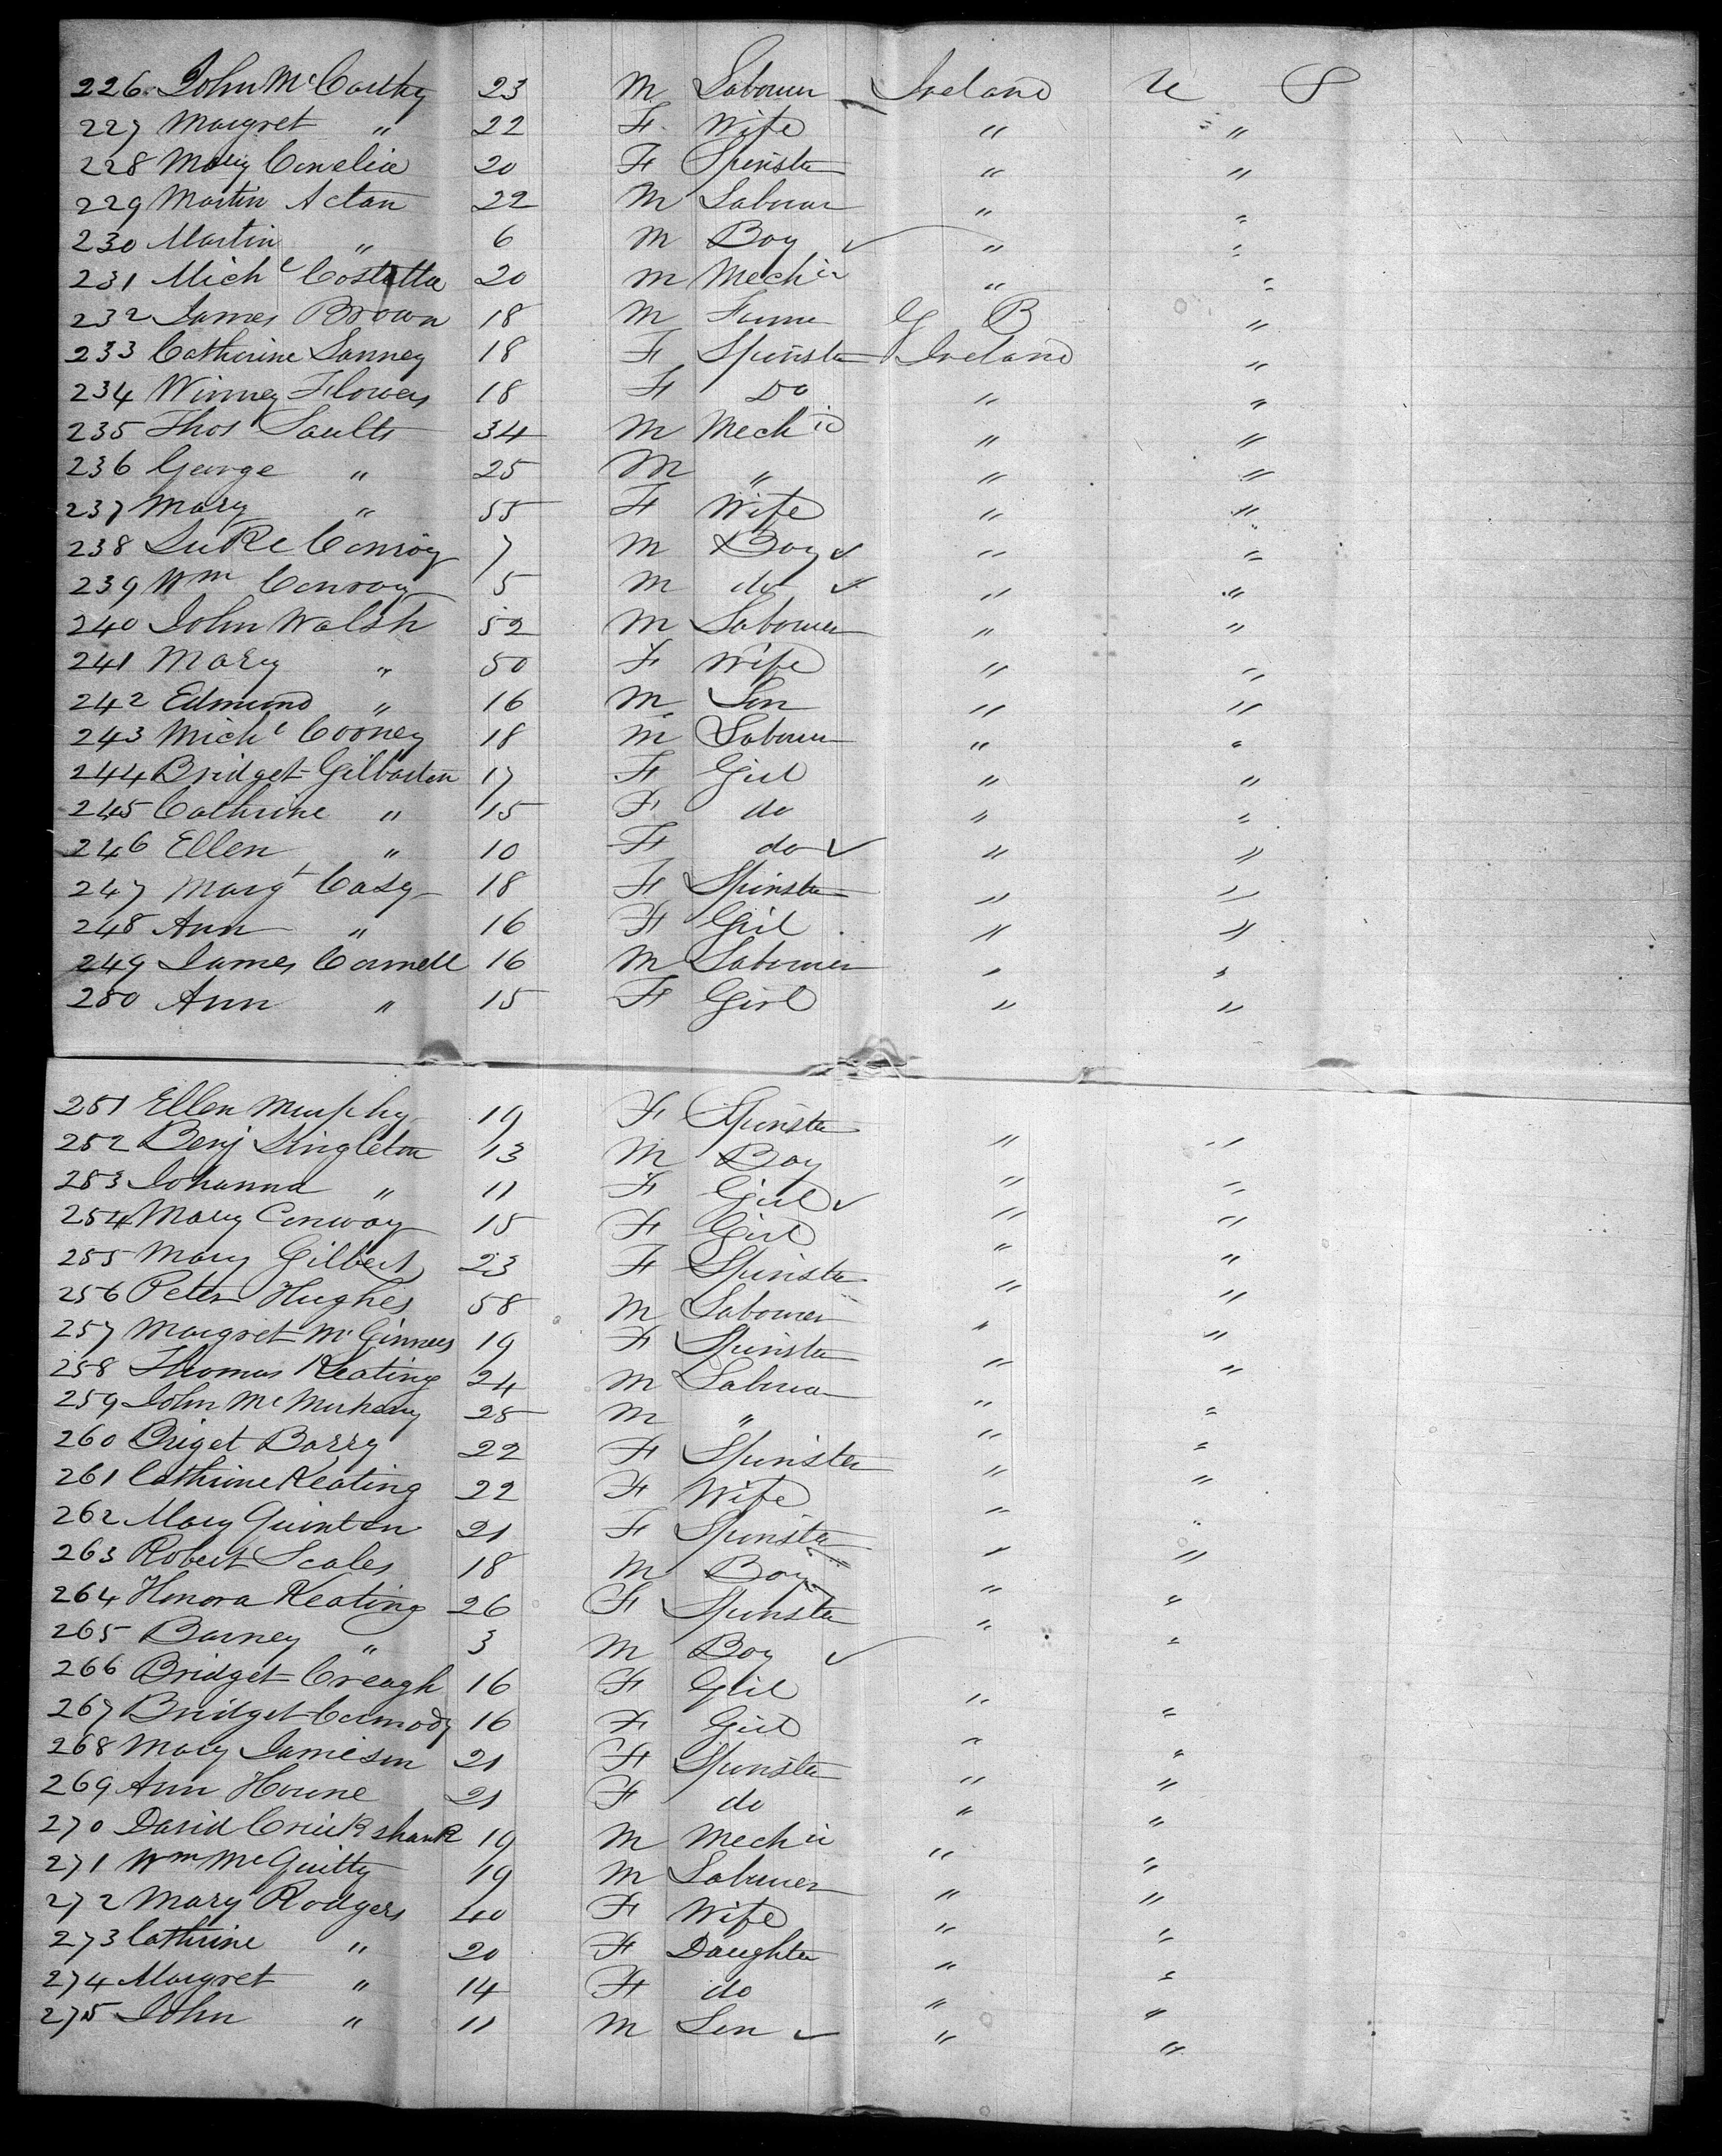 226 John McCarthy 23 M Labourer Ireland U S
227 Margret " 22 F Wife " "
228 Mary Conelia 20 F Spinster " "
229 Martin Actan 22 M Labourer " "
230 Martin " 6 M Boy ✓ " "
231 Michl Costella 20 M Mechic " "
232 James Brown 18 M G B "
233 Catherine Lanney 18 F Spinster Ireland "
234 Winney Flowers 18 F Do " "
235 Thos Saults 34 M Mechic " "
236 George " 25 M " " "
237 Mary " 55 F Wife " "
238 Luke Conroy 7 M Boy ✓ " "
239 Wm Conroy 5 M do ✓ " "
240 John Walsh 52 M Labourer " "
241 Mary " 50 F Wife " "
242 Edmund " 16 M Son " "
243 Michl Cooney 18 M Labourer " "
244 Bridget Gilbarton 17 F Girl " "
245 Cathrine " 15 F do " "
246 Ellen " 10 F do ✓ " "
247 Margt Casy 18 F Spinster " "
248 Ann " 16 F Girl " "
249 James Connell 16 M Labourer " "
250 Ann " 15 F Girl " "
251 Ellen Murphy 19 F Spinster " "
252 Benj Singleton 13 M Boy " "
253 Johanna " 11 F Girl ✓ " "
254 Mary Conway 15 F Girl " "
255 Mary Gilbert 23 F Spinster " "
256 Peter Hughes 58 M Labourer " "
257 Margret McGinnes 19 F Spinster " "
258 Thomas Keating 24 M Labourer " "
259 John Mc 25 M " " "
260 Briget Barry 22 F Spinster " "
261 Cathrine Keating 22 F Wife " "
262 Mary Quinton 21 F Spinster " "
263 Robert Scales 18 M Boy " "
264 Honora Keating 26 F Spinster " "
265 Barney " 3 M Boy ✓ "
266 Bridget Creagh 16 F Girl " "
267 Bridget Carmody 16 F Girl " "
268 Mary Jamieson 21 F Spinster " "
269 Ann Hourne 21 F do " "
270 David Cruikshank 19 M Mechic " "
271 Wm McGuitty 19 M Labourer " "
272 Mary Rodgers 40 F Wife " "
273 Cathrine " 20 F Daughter " "
274 Margret " 14 F do " "
275 John " 11 M Son ✓ " "